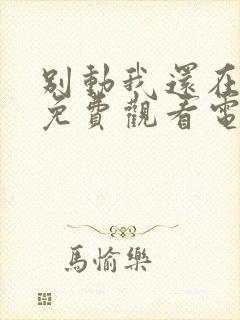 別動我還在
免費觀看電
馬愉樂